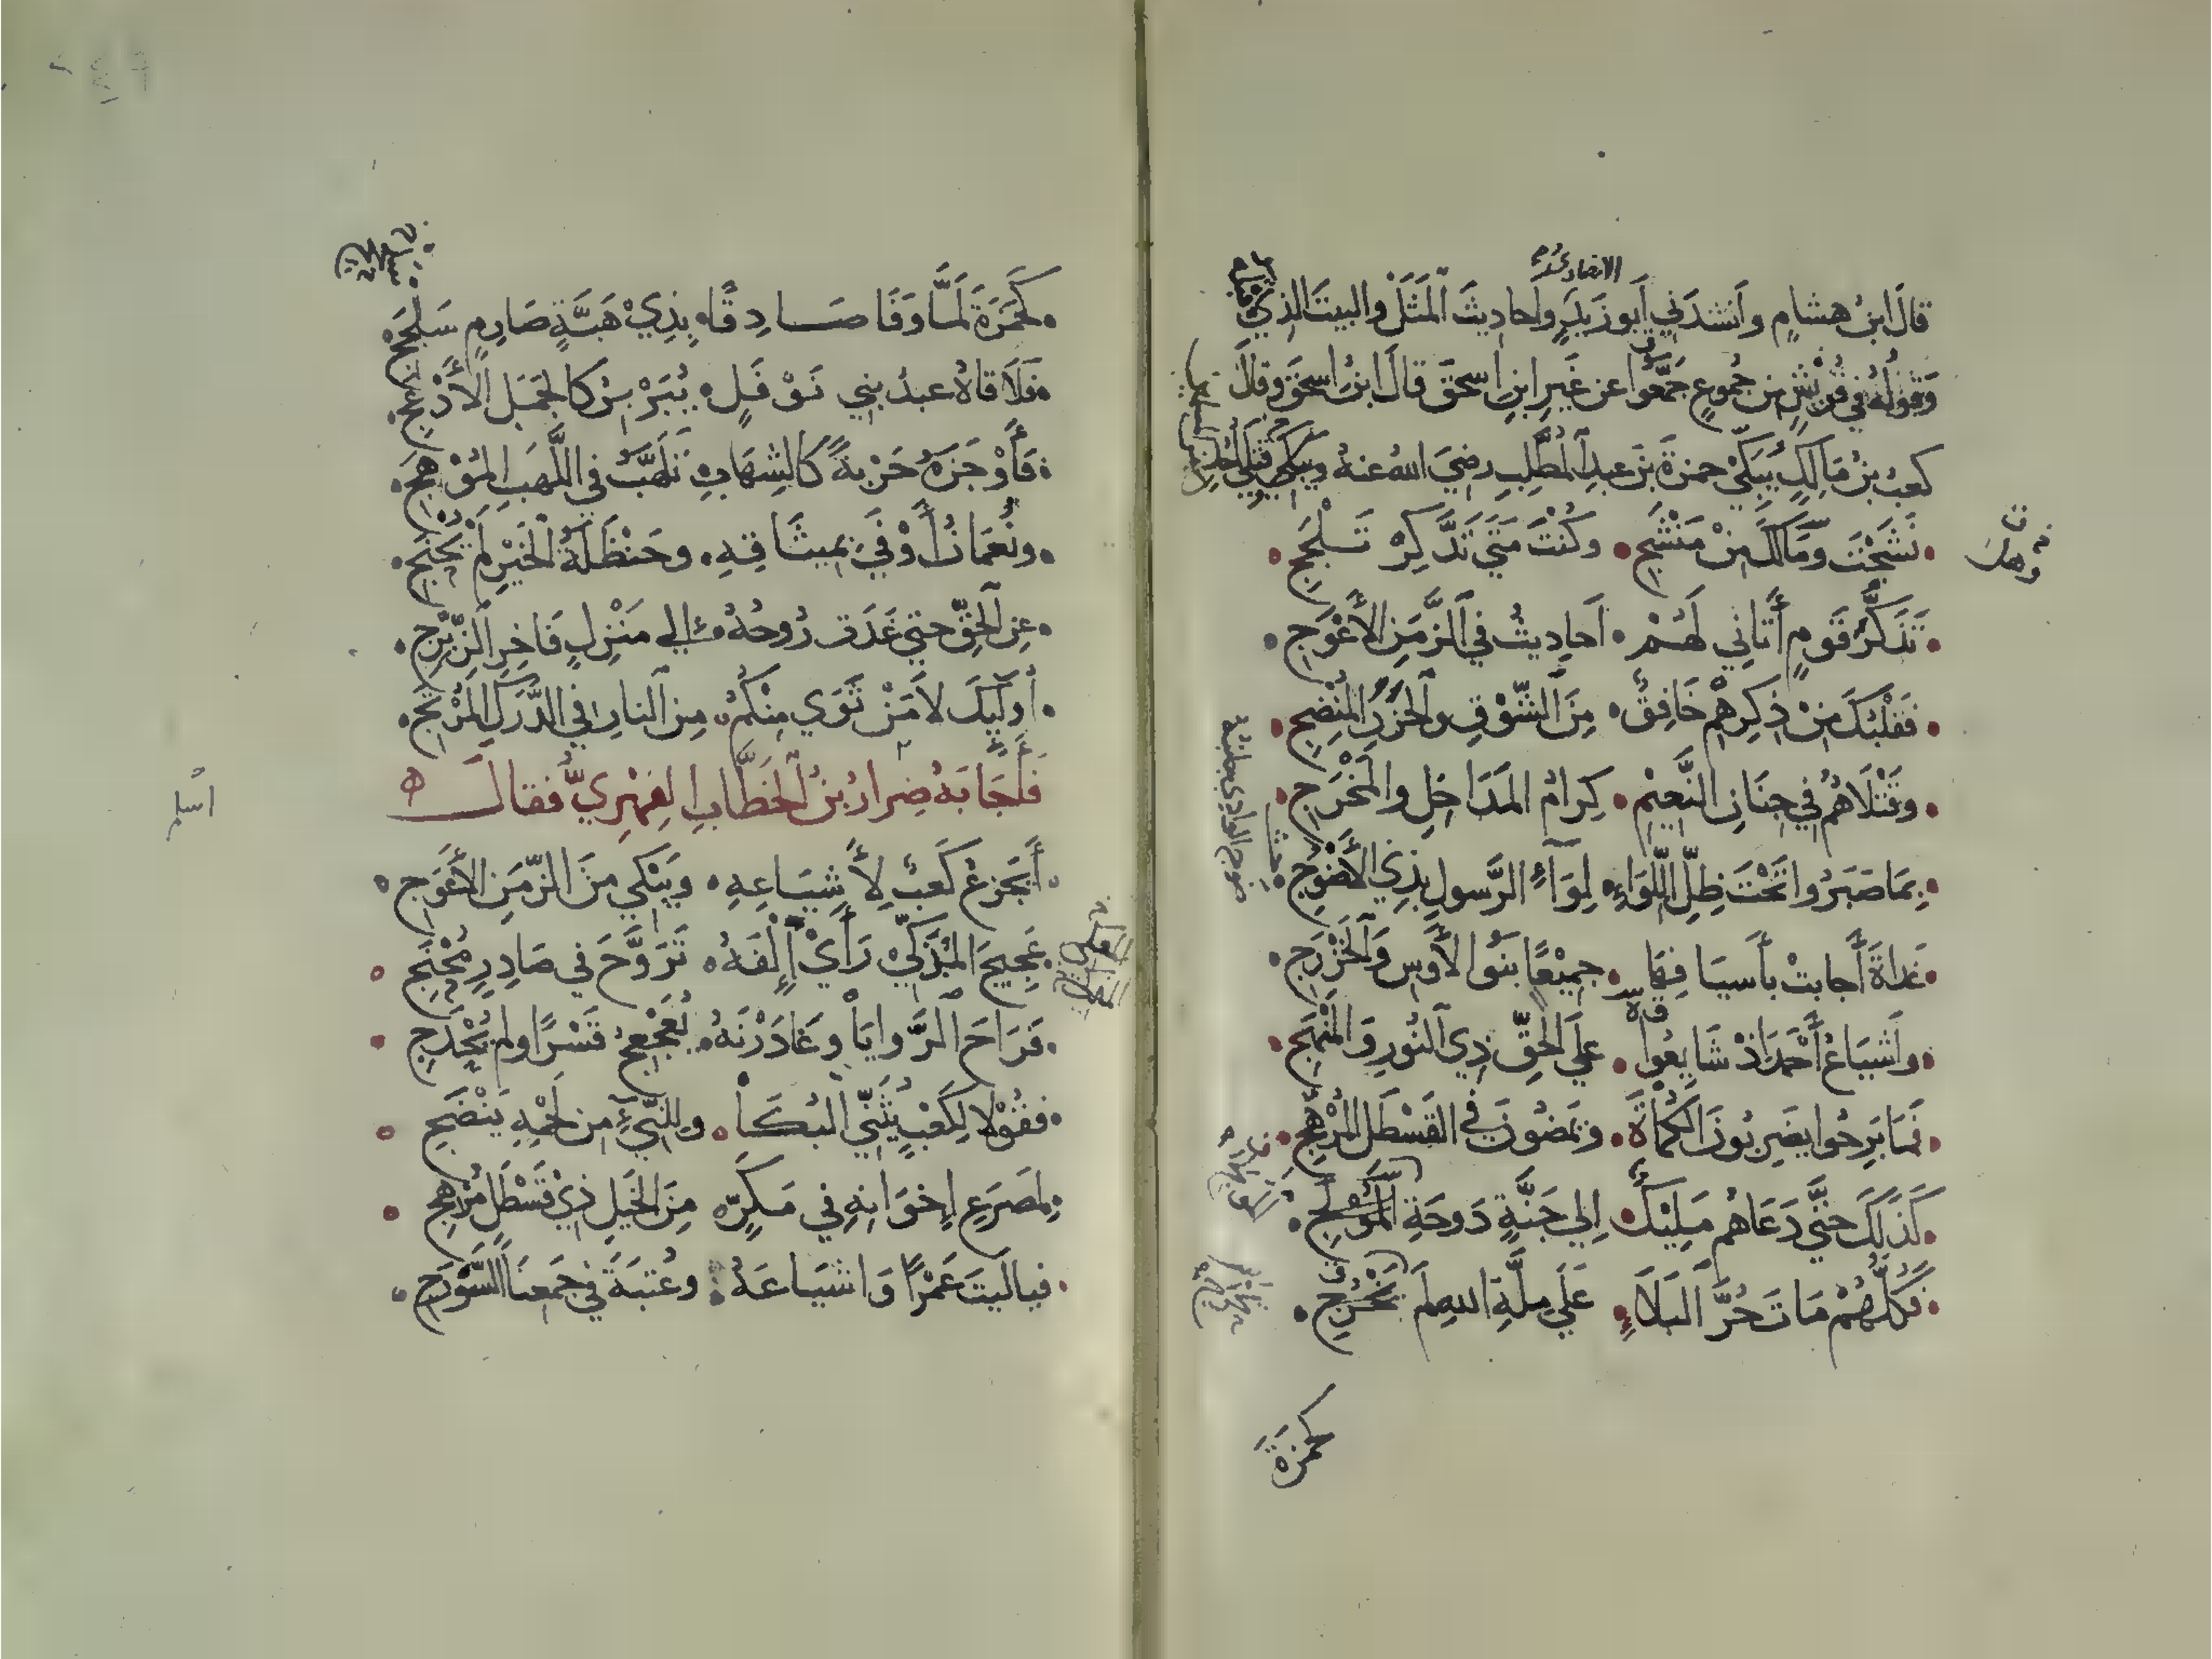 قالَ ابنُ هشامٍ وأنشدَني أبو زيدٍ وأحاديثَ المَثَل والبيتَ الذي يليه
الانصاري
وقولُهُ في قُريشٍ من جُموعٍ جُمِّعوا عن غيرِ ابنِ اسحقَ قالَ ابنُ اسحقَ وقالَ
كعبُ بنُ مَالِكٍ يُبَكّي حمزةَ بنَ عبدِ المُطَّلِبِ رضيَ اللهُ عنهُ
نَشَجْتَ وَمَالَكَ مِنْ مَنْشَجِ • وكُنْتَ مَتَي تَذَّكِرْ تَلْجَجِ
تَذَكُّرَ قَومٍ أَتَانِي لَهُمْ • أَحادِيثُ في الزَّمَنِ الأَعْوَجِ
فَقَلْبُكَ مِنْ ذِكرِهِمْ خَافِقٌ • مِنَ الشَّوْقِ والحَزَنِ المُنْضِجِ
وقَتْلَاهُمُ في جِنَانِ النَّعِيْمِ • كِرَامُ المَدَاخِلِ والمَخْرَجِ
بِمَا صَبَرُوا تَحْتَ ظِلِّ اللِّوَاءِ • لِوَاءِ الرَّسولِ بِذِي الأَضْوُجِ
غداةَ أَجابتْ بأَسيافِهَا • جميْعًا بَنُوا الأَوسِ وَالخَزْرَجِ
وأَشيَاعُ أَحْمَدَ اذْ شَايَعُوا • علَي الحَقِّ ذِي النُورِ وَالمَنْهَجِ
فَمَا بَرِحُوا يضرِبُونَ الكُمَاةَ • ويَمضُونَ في القَسْطَلِ المُرْهَجِ
كَذَلكَ حتَّي دَعَاهُم مَلِيْكٌ • الِي جَنَّةٍ دَوحَةِ المَوْلِجِ
فَكُلُّهُمْ مَاتَ حُرَّ البَلَاءِ • عَلَي مِلَّةِ اللهِ لَم يَحْرَجِ
كحمزةَ
كَحَمْزَةَ لَمَّا وَفَا صَادِقًا • بِذِيْ هَبَّةٍ صَارِمٍ سَلْجَجِ
فَلَاقاهُ عبدُ بني نَوْفَلٍ • يُبَرْبِرُ كالجَمَلِ الأَدْعَجِ
فَأَوْجَزَهُ حَرْبةً كَالشِهَابِ • تَلَهَّبُ في اللَّهَبِ المُوْهَجِ
ونُعمَانُ أَوْفَي بِمِيثَاقِهِ • وحَنْظَلَةُ الخَيْرِ لَمْ يُحْنَجِ
عنِ الحَقِّ حتي غَدَتْ رُوحُهُ • الي مَنْزِلٍ فَاخِرِ الزِّبْرِجِ
أُولَيكَ لَا مَنْ ثَوَي مِنْكُمُ • مِن النارِ في الدَّرَكِ المُرْتَجِ
فَأَجَابَهُ ضِرارُ بنُ الخَطَّابِ الفِهْرِيُّ فقالَ ه
أَيَجزعُ كَعبٌ لِأَشيَاعِهِ • ويَبْكي مِنَ الزّمَنِ الأَعْوَجِ
عَجِيجَ المُذَكّي رَأَيْ إِلْفَهُ • تَرَوَّحَ في صَادِرٍ مُحْنَجِ
فَرَاحَ الرَّوايَا وَغَادَرْنَهُ • يُعَجْعِجُ قَسْرًا ولم يُحْدَجِ
فقُوْلا لِكَعْبٍ يُثَنّي البُكَا • وللنّيْءِ من لَحْمِهِ يَنْضَجِ
لِمصَرعِ اِخوَانِهِ في مَكَرٍّ • مِنَ الخَيلِ ذِيْ قَسْطَلٍ مُرْهَجِ
فيا لَيتَ عَمْرًا وَاشيَاعَهُ • وعُتبَةَ في جَمعِنَا السَّوْرَجِ
اسلم